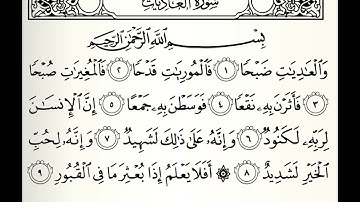 سورة العاديات
بِسْمِ اللَّهِ الرَّحْمَٰنِ الرَّحِيمِ
وَالْعَادِيَاتِ ضَبْحًا ١ فَالْمُورِيَاتِ قَدْحًا ٢ فَالْمُغِيرَاتِ صُبْحًا
٣ فَأَثَرْنَ بِهِ نَقْعًا ٤ فَوَسَطْنَ بِهِ جَمْعًا ٥ إِنَّ الْإِنسَانَ
لِرَبِّهِ لَكَنُودٌ ٦ وَإِنَّهُ عَلَىٰ ذَٰلِكَ لَشَهِيدٌ ٧ وَإِنَّهُ لِحُبِّ
الْخَيْرِ لَشَدِيدٌ ٨ ۞ أَفَلَا يَعْلَمُ إِذَا بُعْثِرَ مَا فِي الْقُبُورِ ٩